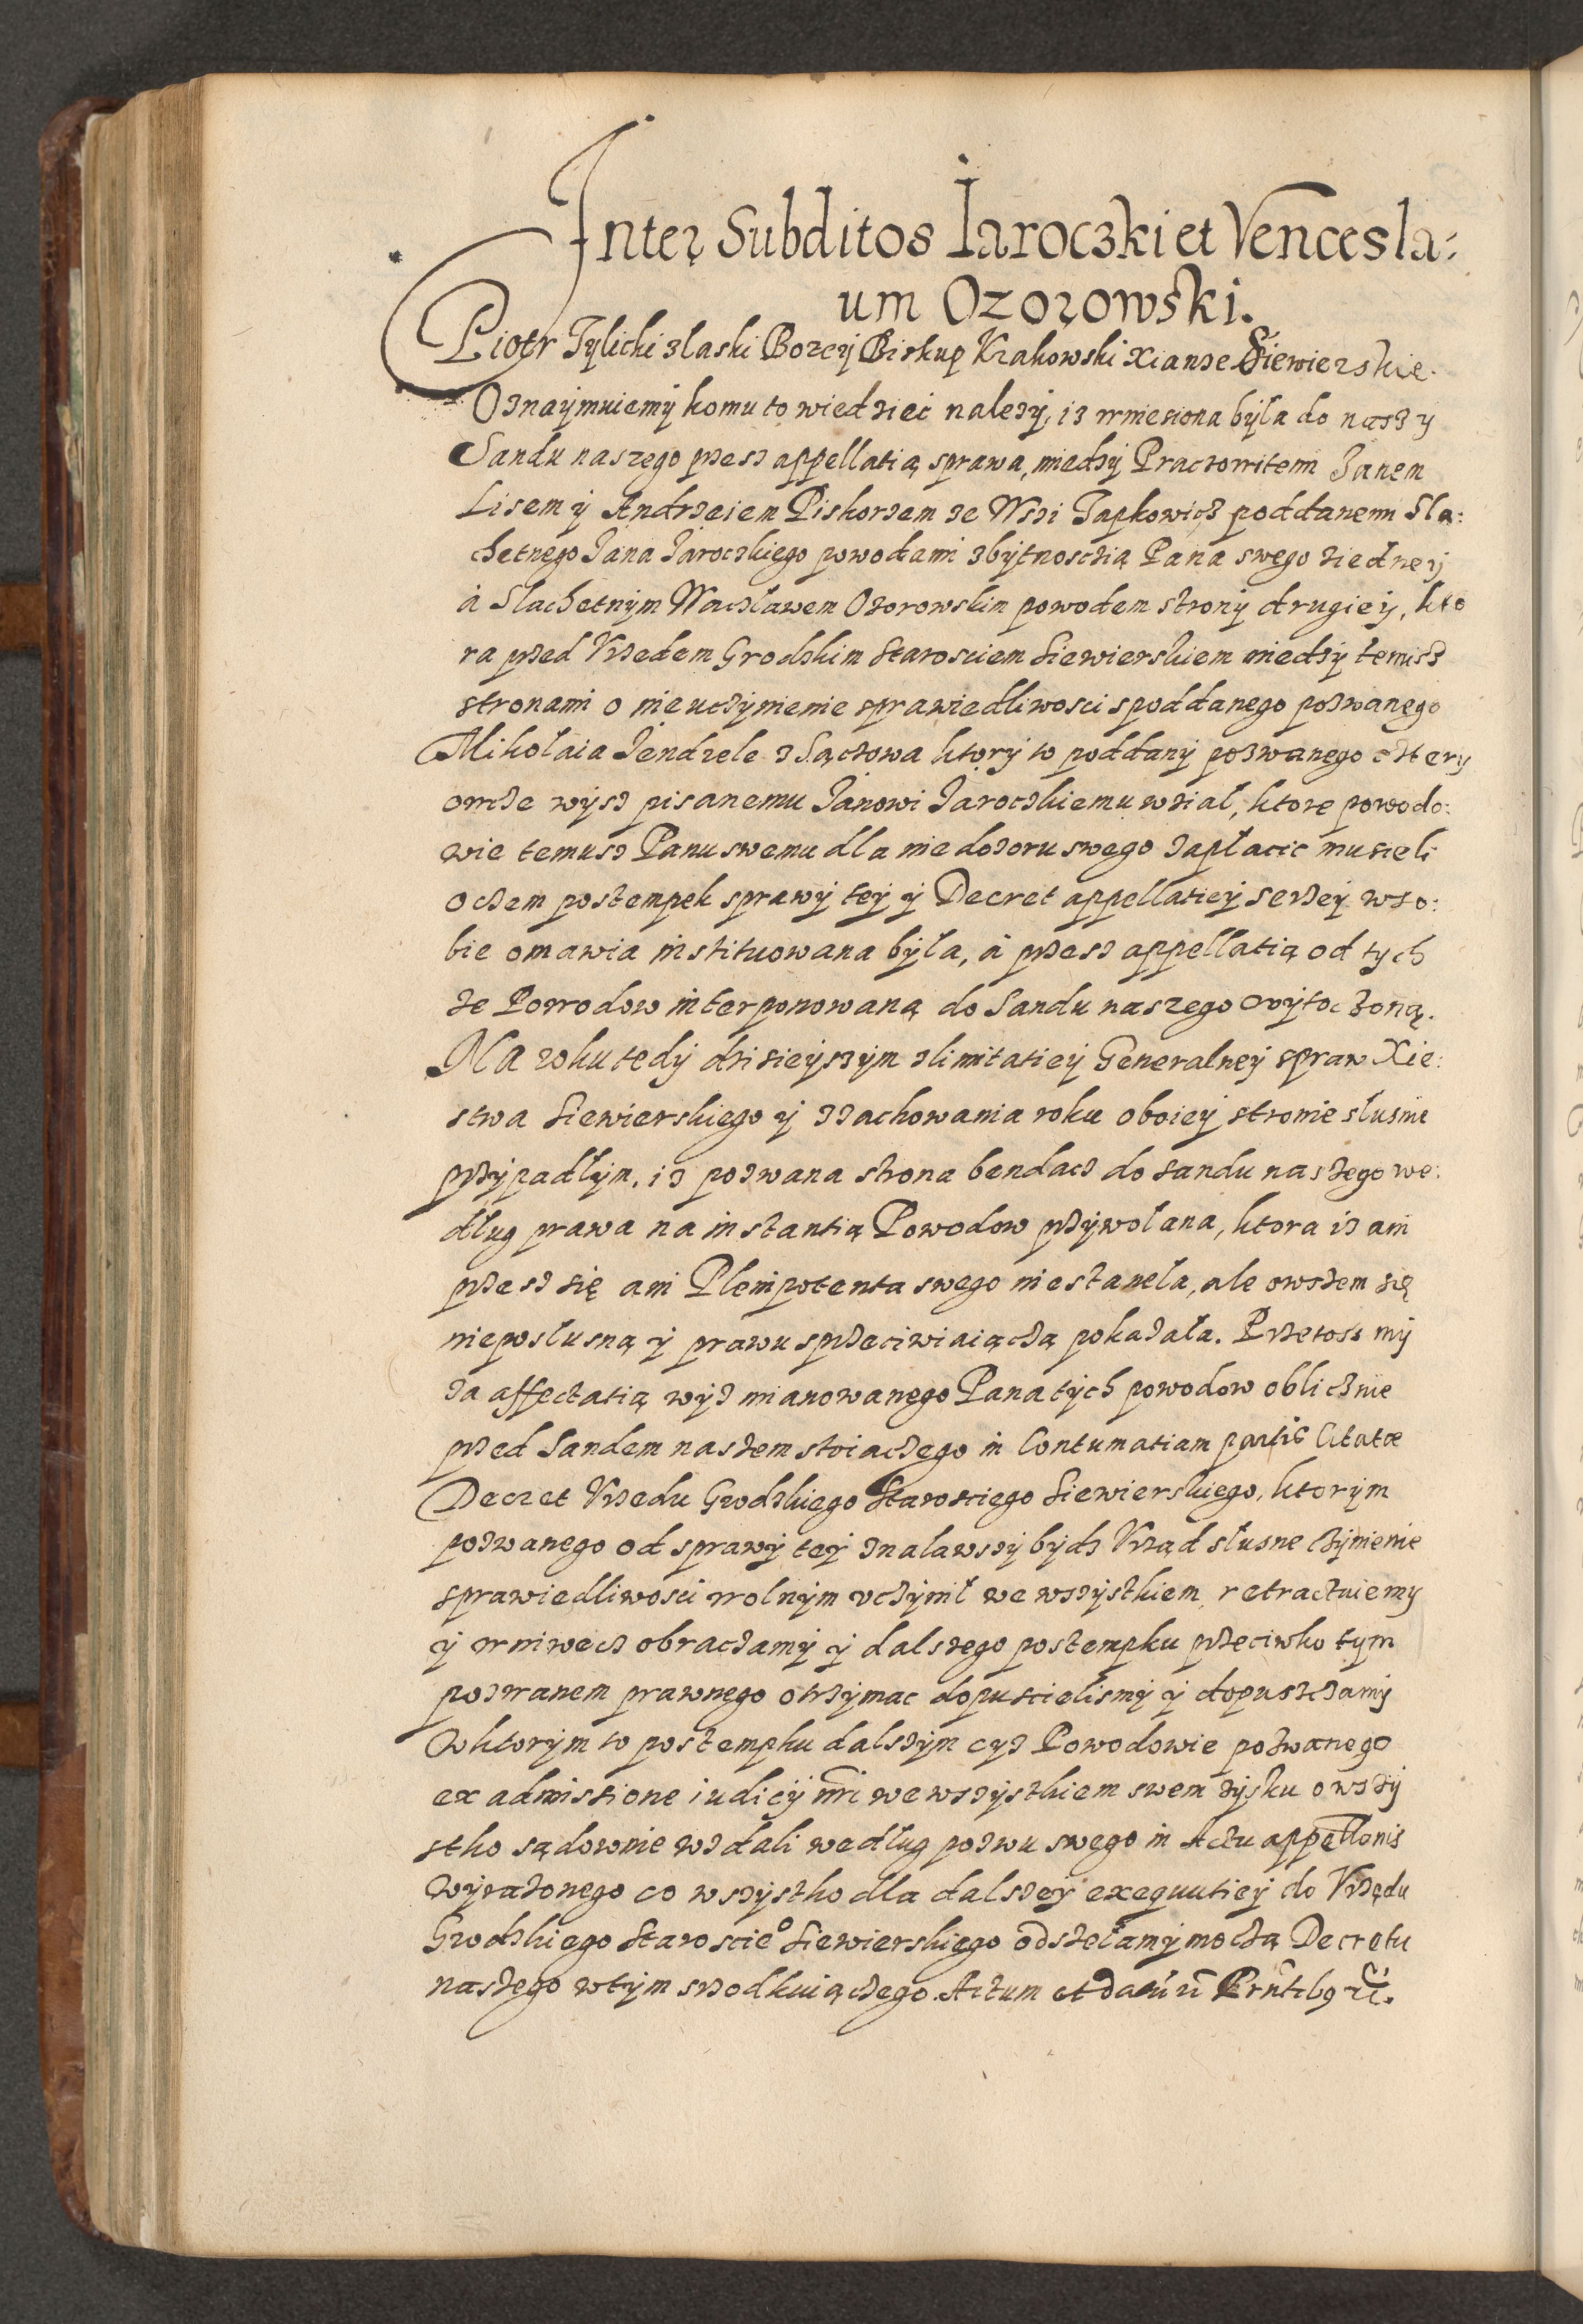 Inter Subditos Jaroczki et Vencesla:
um Ozorowski.
Piotr Tylicki z laski Bozey Biskup Krakowski Xianze Siewierskie.
Oznaymuiemy komu to wiedziec nalezy, iz wniesiona byla do naszy
Sandu naszego przesz appellatią sprawa, miedzy Praczowitemi Janem
Lisem y Andrzeiem Piskorzem ze Wszi Tapkowicz poddanemi Sla:
chetnego Jana Jaroczkiego powodami zbytnosczią Pana swego ziedney
à Slachetnym Waczławem Ozorowskim powodem strony drugiey, kto
ra przed Vrzedem Grodzkim Starosciem Siewierskiem miedzy temisz
stronami o nieuczynienie sprawiedliwosci s poddanego pozwanego
Mikolaia Jendrzele z Sączowa ktory to poddany pozwanego cztery
owcze wysz pisanemu Janowi Jaroczkiemu wzial, ktore powodo:
wie temusz Panu swemu dla niedozoru swego zaplacic musieli
o czem postempek sprawy tey y Decret appellatiey serzey w so:
bie omawia instituowana byla, à przesz appellatią od tych
ze Powodow interponowaną do Sandu naszego wytoczoną.
Na roku tedy dzisieyszym z limitatiey Generalney spraw Xie:
stwa Siewierskiego y z zachowania roku oboiey stronie slusnie
przypadłym, iz pozwana strona bendacz do sandu naszego we:
dlug prawa na instantią Powodow przywolana, ktora iz ani
przesz się ani Plenipotenta swego niestanela, ale owszem się
nieposlusną y prawu sprzeciwiaiączą pokazala. Przetosz my
za affectatią wysz mianowanego Pana tych powodow oblicznie
przed Sandem naszem stoiaczego in Contumatiam partis Citatæ
Decret Vrzedu Grodzkiego Starosciego Siewierskiego, ktorym
pozwanego od sprawy tey znalawszy bydz Vrząd slusne czynienie
sprawiedliwosci wolnym vczynil we wszystkiem, retractuiemy
y wniwecz obraczamy y dalszego postempku przeciwko tym
pozwanem prawnego otrzymac dopuscielismy y dopuszczamy
W ktorym to postempku dalszym cysz Powodowie pozwanego
ex admissione iudicij nri we wszystkiem swem zysku o wszy
stko sądownie wzdali wedlug pozwu swego in Actu appellonis
wyrazonego co wszystko dla dalszey exequutiey do Vrzędu
Grodzkiego Staroscieo Siewierskiego odszelamy moczą Decretu
naszego w tym szrodkuiączego. Actum et datum ut Prntibg etc.